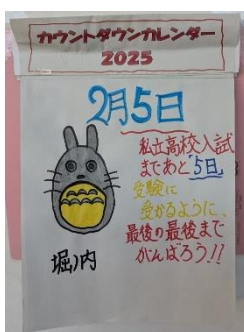 カウントダウンカレンダー
2025
2月5日
私立高校入試
まであと「5日」
受験に
受かるように、
最後の最後まで
がんばろう!!
堀ノ内